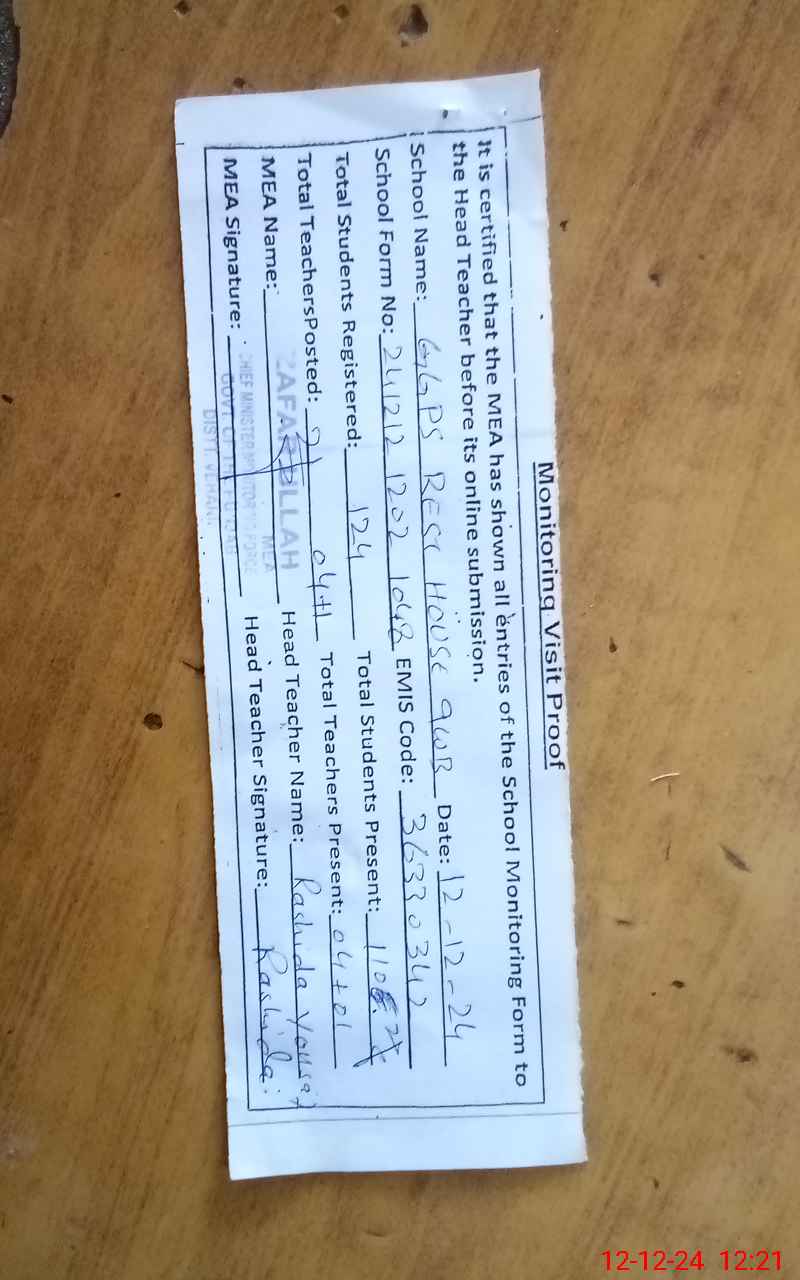 Monitoring Visit Proof
It is certified that the MEA has shown all entries of the School Monitoring Form to
the Head Teacher before its online submission.
School Name: GGPS REST HOUSE 9WB Date: 12-12-24
School Form No: 241212 1202 1048 EMIS Code: 36330342
Total Students Registered: 124 Total Students Present: 110
Total TeachersPosted: 04+1 Total Teachers Present: 04+01
MEA Name: ZAFARULLAH Head Teacher Name: Rashida Yousaf
MEA
MEA Signature: Head Teacher Signature: Rashida
CHIEF MINISTER MONITORING FORCE
GOVT. OF THE PUNJAB
DISTT. VEHARI.
12-12-24 12:21